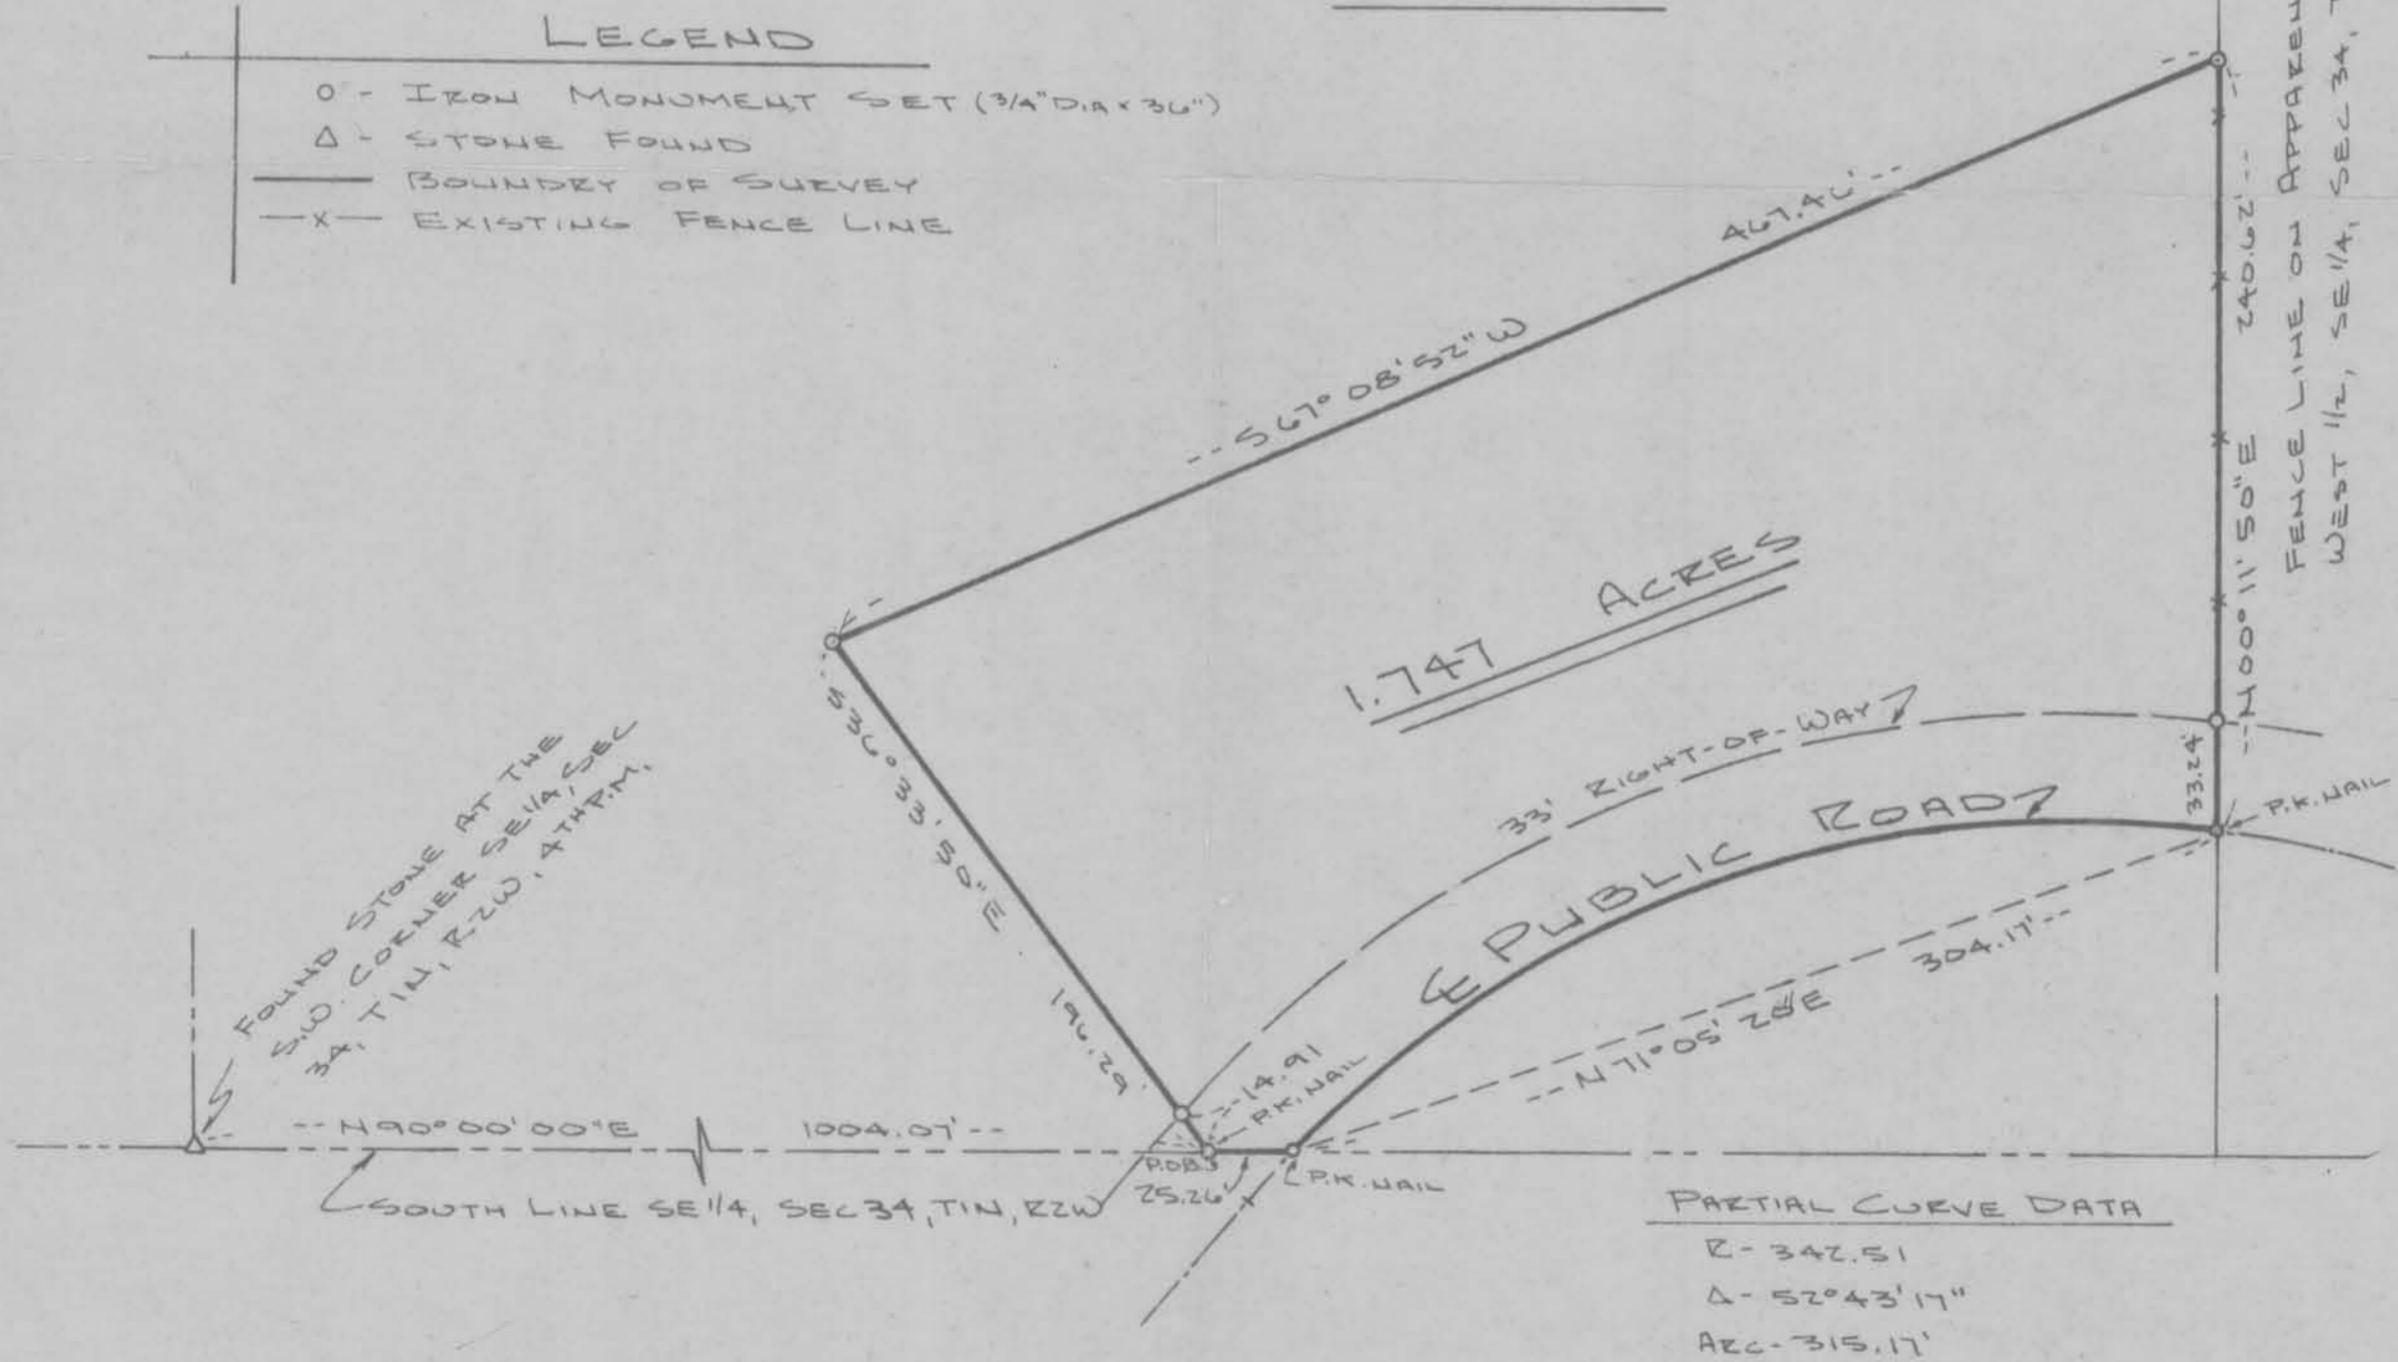 LEGEND
O - IRON MONUMENT SET (3/4" DIA x 36")
Δ - STONE FOUND
BOUNDRY OF SURVEY
—x— EXISTING FENCE LINE
467.46'
S 67° 08' 52" W
240.62'
N 00° 11' 50" E
FENCE LINE ON
WEST 1/2, SE 1/4, SEC 34,
1.747 ACRES
33' RIGHT-OF-WAY
℄ PUBLIC ROAD
33.24'
P.K. NAIL
304.17'
N 71° 05' 28" E
S 36° 33' 50" E
196.29'
14.91
P.K. NAIL
FOUND STONE AT THE
S.W. CORNER SE 1/4, SEC
34, T1N, R2W, 4TH P.M.
N 90° 00' 00" E 1004.07'
P.O.B.
25.26'
P.K. NAIL
SOUTH LINE SE 1/4, SEC 34, T1N, R2W
PARTIAL CURVE DATA
R - 342.51
Δ - 52° 43' 17"
ARC - 315.17'